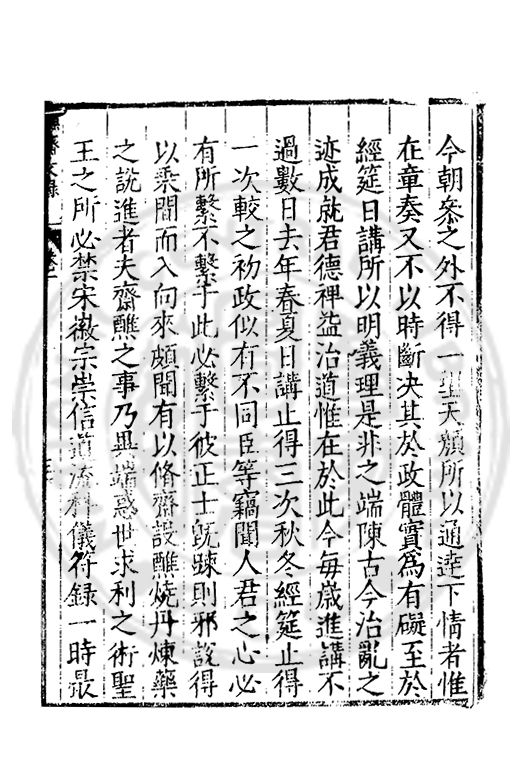 今朝叅之外不得一聖天顔所以通達下情者惟
在章奏又不以時斷决其於政體實為有礙至於
經筵日講所以明義理是非之端陳古今治亂之
迹成就君德裨益治道惟在於此今每嵗進講不
過數日去年春夏日講止得三次秋冬經筵止得
一次較之初政似有不同臣等竊聞人君之心必
有所繫不繫于此必繫于彼正士旣踈則邪說得
以乘間而入向來頗聞有以脩齋設醮燒丹煉藥
之說進者夫齋醮之事乃異端惑世求利之術聖
王之所必禁宋徽宗崇信道流科儀符録一時最